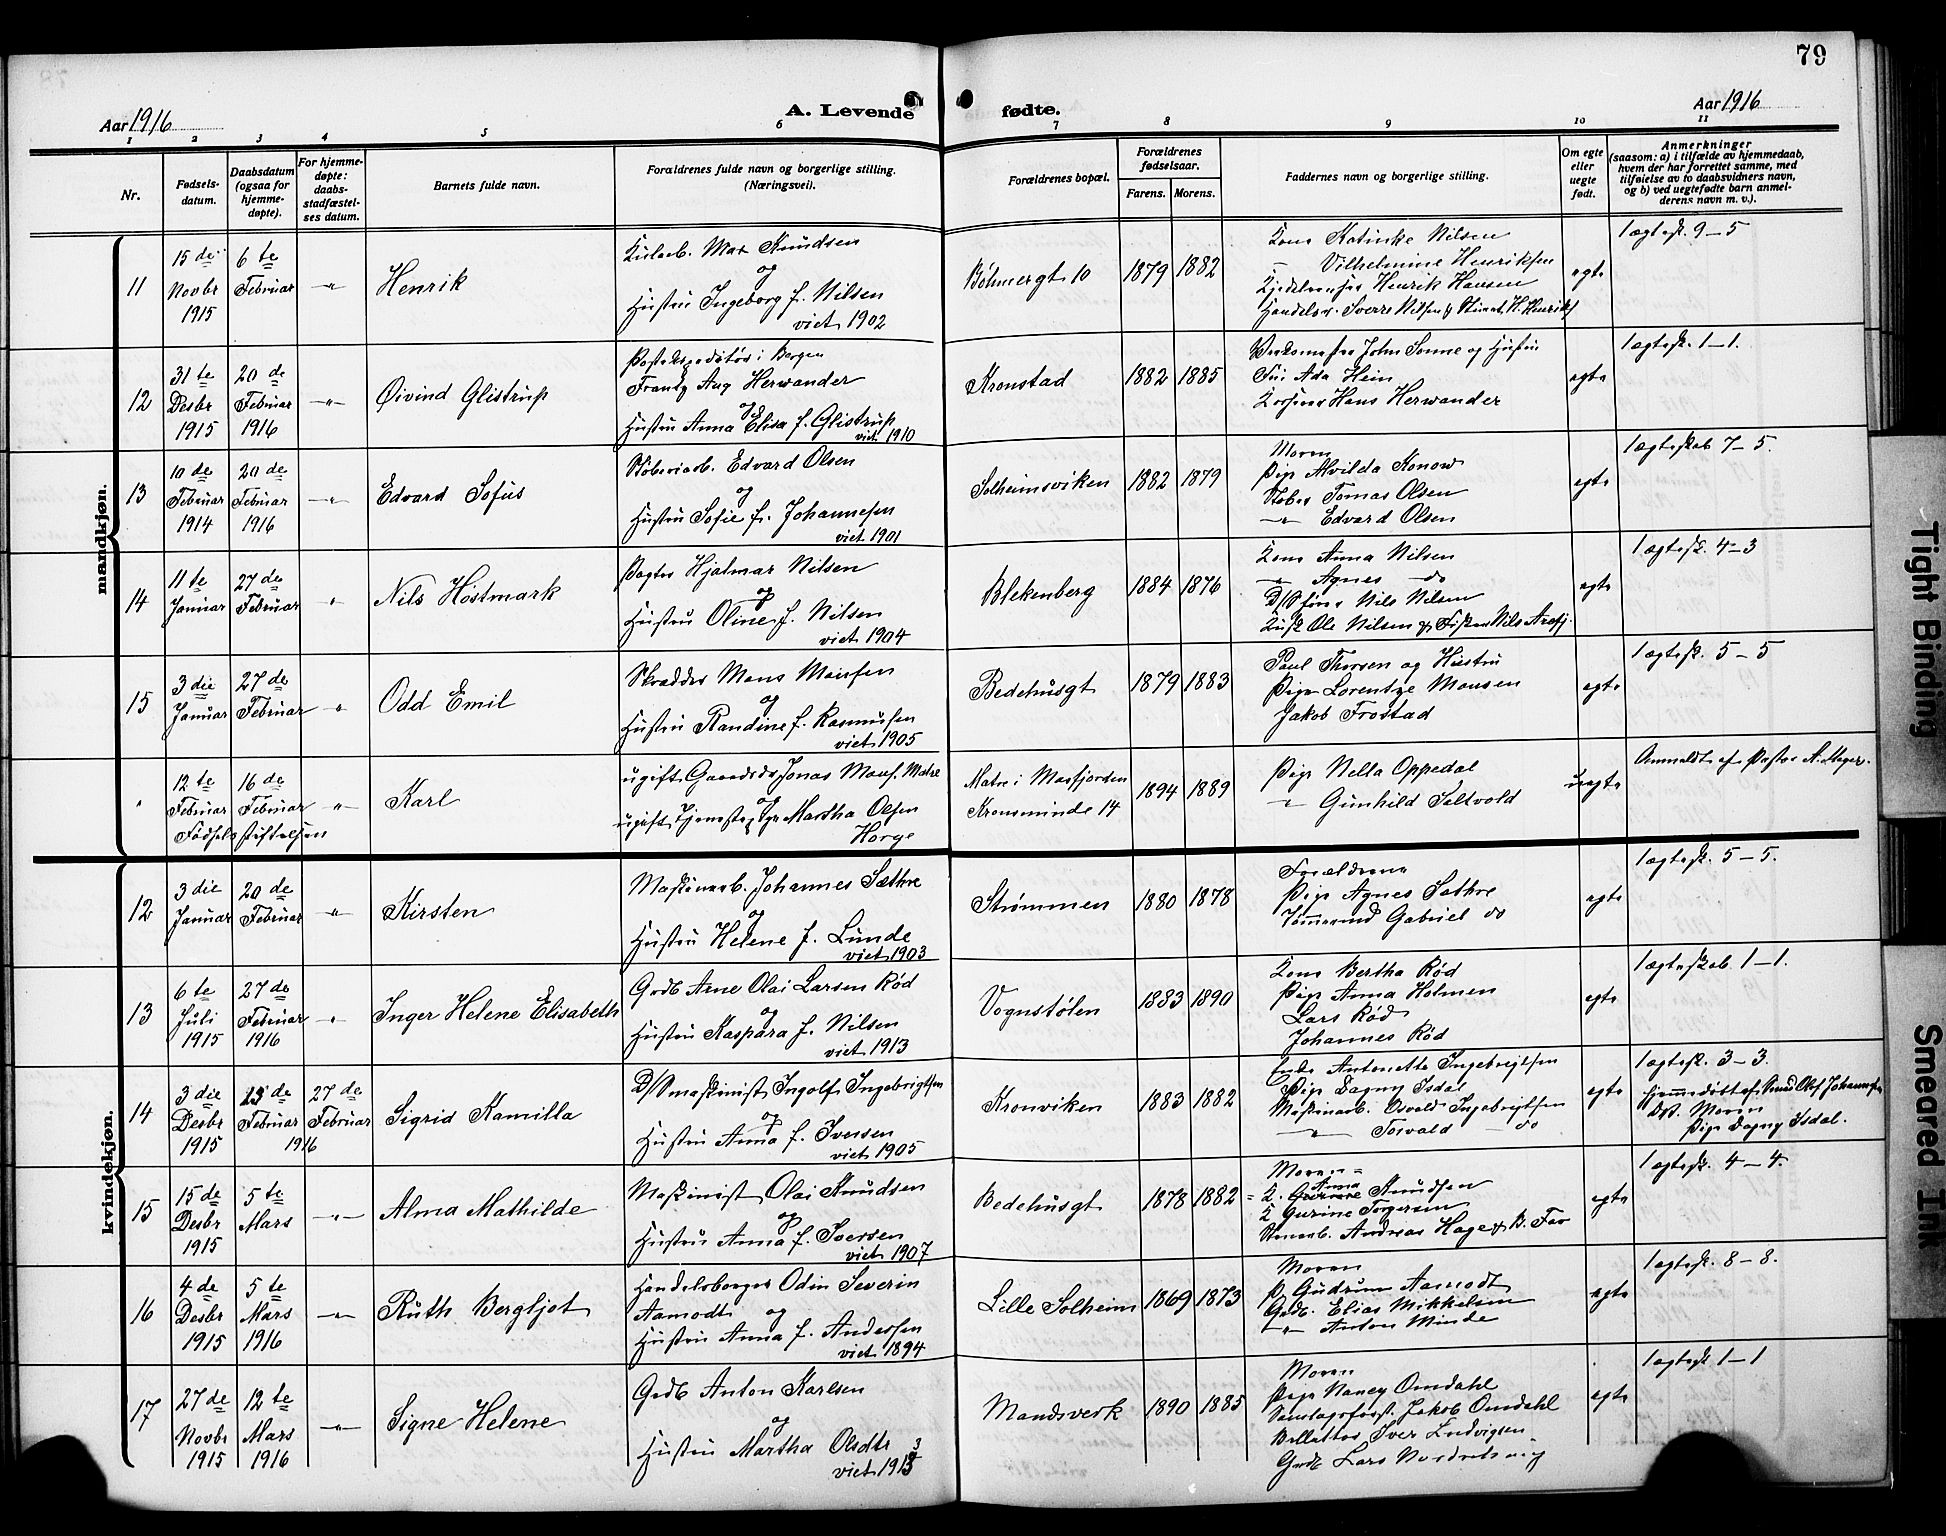 79
Aar 1916
A. Levende fødte.
Aar 1916
1 2 3 4 5 6 7 8 9 10 11
Nr.
Fødsels-
datum.
Daabsdatum
(ogsaa for
hjemme-
døpte).
For hjemme-
døpte:
daabs-
stadfæstel-
ses datum.
Barnets fulde navn.
Forældrenes fulde navn og borgerlige stilling.
(Næringsvei).
Forældrenes bopæl.
Forældrenes
fødselsaar.
Farens. Morens.
Faddernes navn og borgerlige stilling.
Om egte
eller
uegte
født.
Anmerkninger
(saasom: a) i tilfælde av hjemmedaab,
hvem der har forrettet samme, med
tilføielse av to daabsvidners navn,
og b) ved uegtefødte barn anmel-
derens navn m. v.).
mandkjøn.
11
15 de
Novbr
1915
6 te
Februar
-"-
Henrik
Max Knudsen
og
Hustru Ingeborg f. Nilsen
viet 1902
Bøhmergt 10
1879 1882
Kone Katinke Nilsen
— Vilhelmine Henriksen
Henrik Hansen
Sverre Nilsen & H. Henriks
egte
1 ægtesk. 9 – 5
12
31 te
Desbr
1915
20 de
Februar
1916
-"-
Øivind Glistrup
Postekspeditør i Bergen
Frantz Aug Herwander
og
Hustru Anna Elisa f. Glistrup
viet 1910
Kronstad
1882 1885
John Sonne og Hustru
Frü Ada Hein
Hans Herwander
egte
1 ægtesk. 1 – 1.
13
10 de
Februar
1914
20 de
Februar
1916
-"-
Edvard Sofus
Støberiarb. Edvard Olsen
og
Hustru Sofie f. Johannesen
viet 1901
Solheimsviken
1882 1879
Moren
Pige Alvilda Konow
Støber Tomas Olsen
-"- Edvard Olsen
egte
1 ægteskab 7 – 5.
14
11 te
Januar
27 de
Februar
"
Nils Hostmark
Hjalmar Nilsen
og
Hustru Oline f. Nilsen
viet 1904
Blekenberg
1884 1876
Kone Anna Nilsen
-"- Agnes do
Nils Nilsen
Ole Nilsen & Fisker Nils
egte
1 ægtesk. 4 – 3
15
3 die
Januar
27 de
Februar
"
Odd Emil
Skrædder Mons Monsen
og
Hustru Randine f. Rasmussen
viet 1905
Bedehusgt
1879 1883
Paul Thorsen og Hustru
Pige Lorentze Monsen
Jakob Frostad
egte
1 ægtesk. 5 – 5
"
12 te
Februar
16 de
Februar
Fødselsstiftelsen
"
Karl
ugift Jonas Mons. Matre
og
ugift Martha Olsen
Horge
Matre i Masfjorden
Kronsminde 14
1894 1889
Pige Nella Oppedal
-"- Gunhild Saltvold
uegte
Anmeldt af Pastor
kvindekjøn.
12
3 die
Januar
20 de
Februar
"
Kirsten
Maskinarb. Johannes Sæthre
og
Hustru Helene f. Lunde
viet 1903
Strømmen
1880 1878
Forældrene
Pige Agnes Sæthre
Tømmermd Gabriel do
egte
1 ægtesk. 5 – 5.
13
6 te
Juli
1915
27 de
Februar
1916
"
Inger Helene Elisabeth
Grdb Arne Olai Larsen Rød
og
Hustru Kaspara f. Nilsen
viet 1913
Vognstølen
1883 1890
Kone Bertha Rød
Pige Anna Holmen
Lars Rød
Johannes Rød
egte
1 ægteskab 1 – 1.
14
3 die
Desbr
1915
13 de
Februar
27 de
Februar
1916
Sigrid Kamilla
D/Smaskinist Ingolf Ingebrigtsen
og
Hustru Anna f. Iversen
viet 1905
Kronviken
1883 1882
Enke Antonette Ingebrigtsen
Pige Dagny Isdal
Maskinarb. Osvald Ingebrigtsen
-"- Torvald — do
egte
1 ægtesk. 3 – 3.
Hjemmedøbt af Olaf Johannesen
Moren
Pige Dagny Isdal.
15
15 de
Desbr
1915
5 te
Mars
-"-
Alma Mathilde
Maskinist Olai Knudsen
og
Hustru Anna f. Iversen
viet 1907
Bedehusgt
1878 1882
Moren
K. Anna Knudsen
K Gurine Torgersen
Andreas Hage & B. Fae
egte
1 ægtesk. 4 – 4.
16
4 de
Desbr
1915
5 te
Mars
1916
-"-
Ruth Bergljot
Handelsborger Odin Severin
Aamodt og
Hustru Anna f. Andersen
viet 1894
Lille Solheim
1869 1873
Moren
P. Gudrun Aamodt
Grdb. Elias Mikkelsen
-"- Anton Minde
egte
1 ægtesk. 8 – 8.
17
27 de
Novbr
1915
12 te
Mars
1916
-"-
Signe Helene
Grdb Anton Karlsen
og
Hustru Martha Olsdtr
viet 1913
Mandsverk
1890 1885
Moren
Pige Nancy Omdahl
Jakob Omdahl
Iver Ludvigsen
Grdb Lars
egte
1 ægtesk 1 – 1
Tight Binding
Smeared Ink